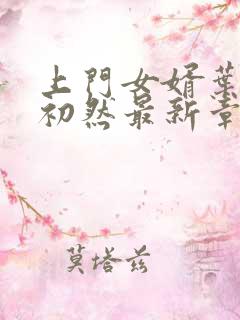 上門女婿葉
初然最新章
莫塔茲